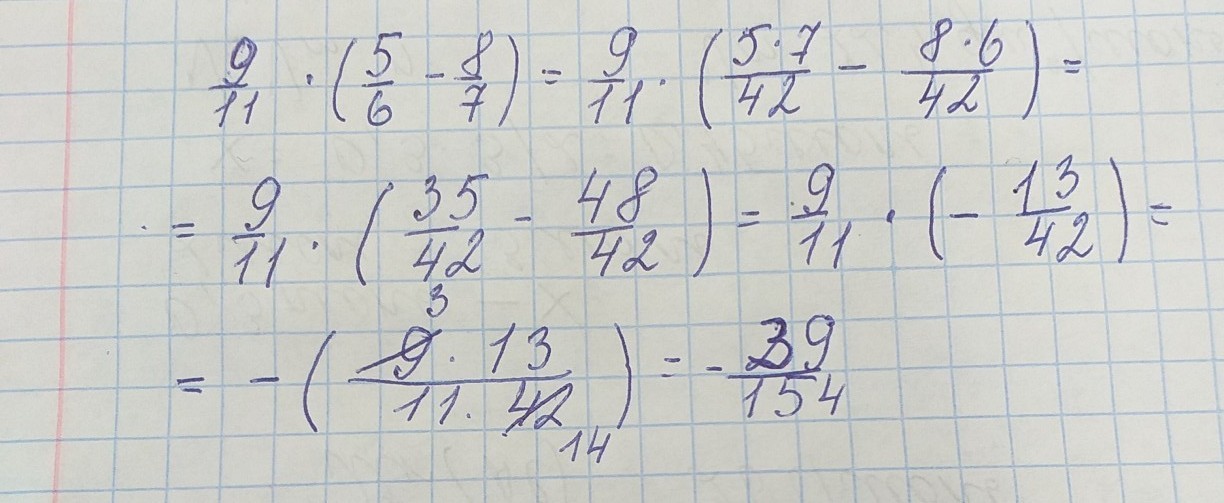 9/11 · (5/6 - 8/7) = 9/11 · (5·7/42 - 8·6/42) =
= 9/11 · (35/42 - 48/42) = 9/11 · (- 13/42) =
= - (9 3 · 13/11 · 42 14) = - 39/154